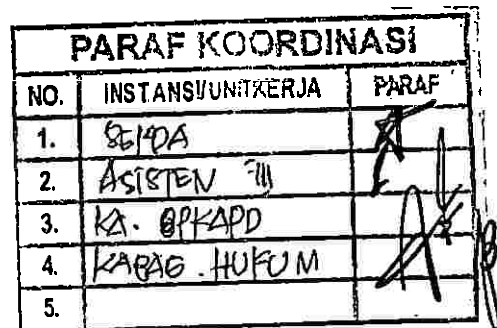 PARAF KOORDINASI
NO. INSTANSI/UNIT KERJA PARAF
1. SEKDA
2. ASISTEN III
3. KA. BPKAPD
4. KABAG. HUKUM
5.